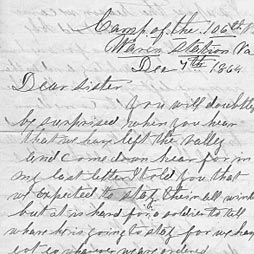 Camp of the 106th
Station Va
Dec 7th 1864
Dear Sister
you will doubtles
by surprised when you hear
that we have left the valley
and come down hear for in
my last letter I told you that
we expected to stay their all wint
but it is hard for a soldier to tell
where he is going to stay for we hav
got to